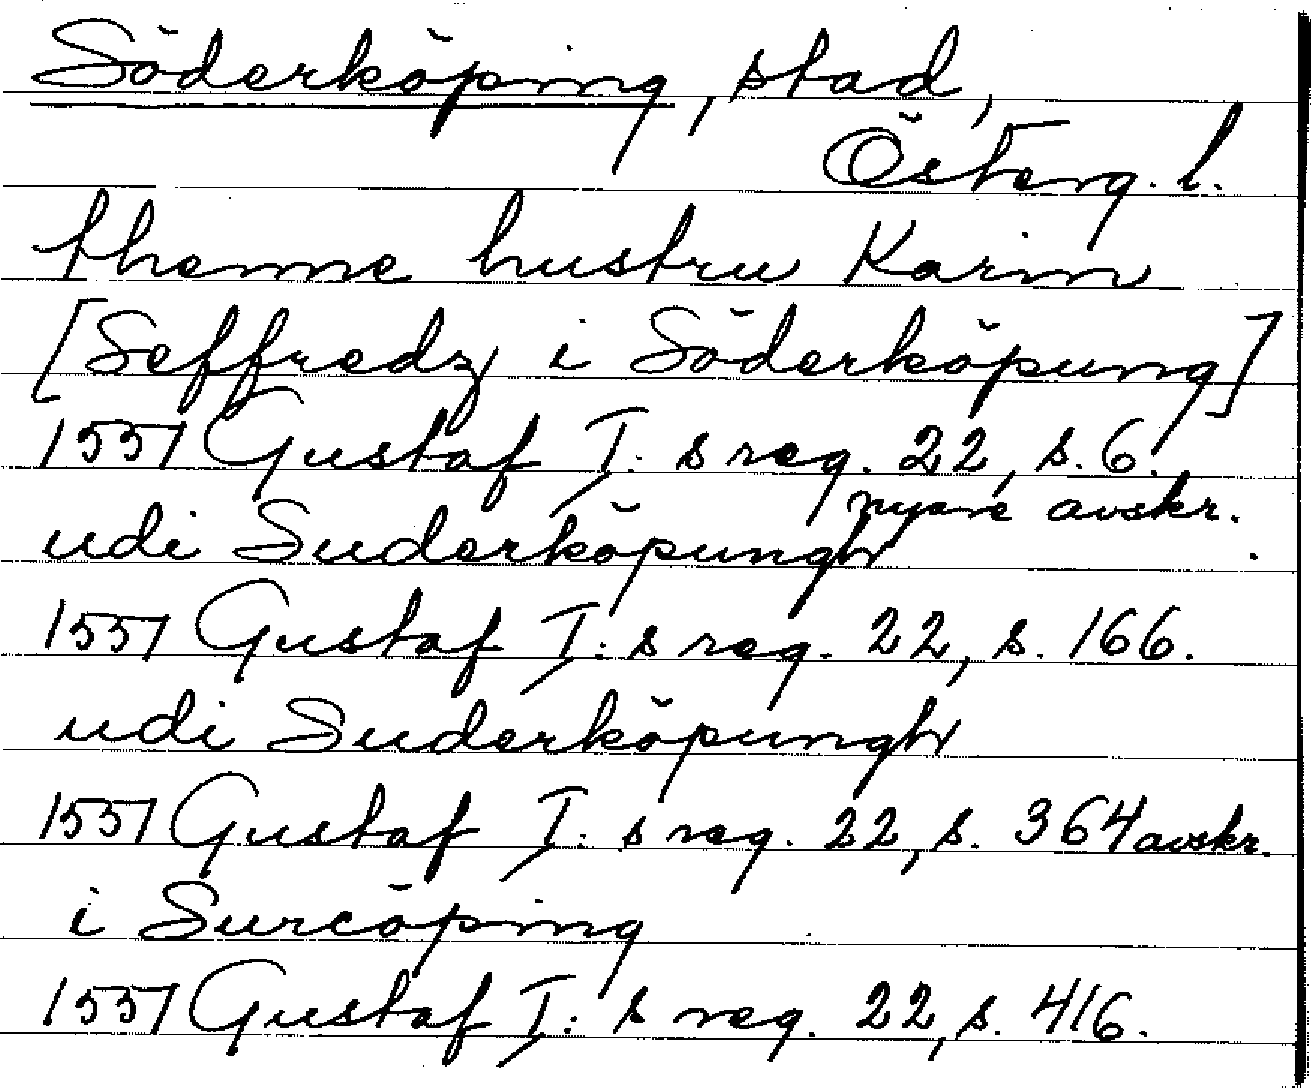 Söderköping, stad,
Österg. l.
thenne hustru Karin
[Seffredz i Söderköpung]
1551 Gustaf I:s reg. 22, s. 6.
nyare avskr.
udi Suderköpungh
1551 Gustaf I:s reg. 22, s. 166.
udi Suderköpungh
1551 Gustaf I:s reg. 22, s. 364 avskr.
i Surcöping
1551 Gustaf I:s reg. 22, s. 416.